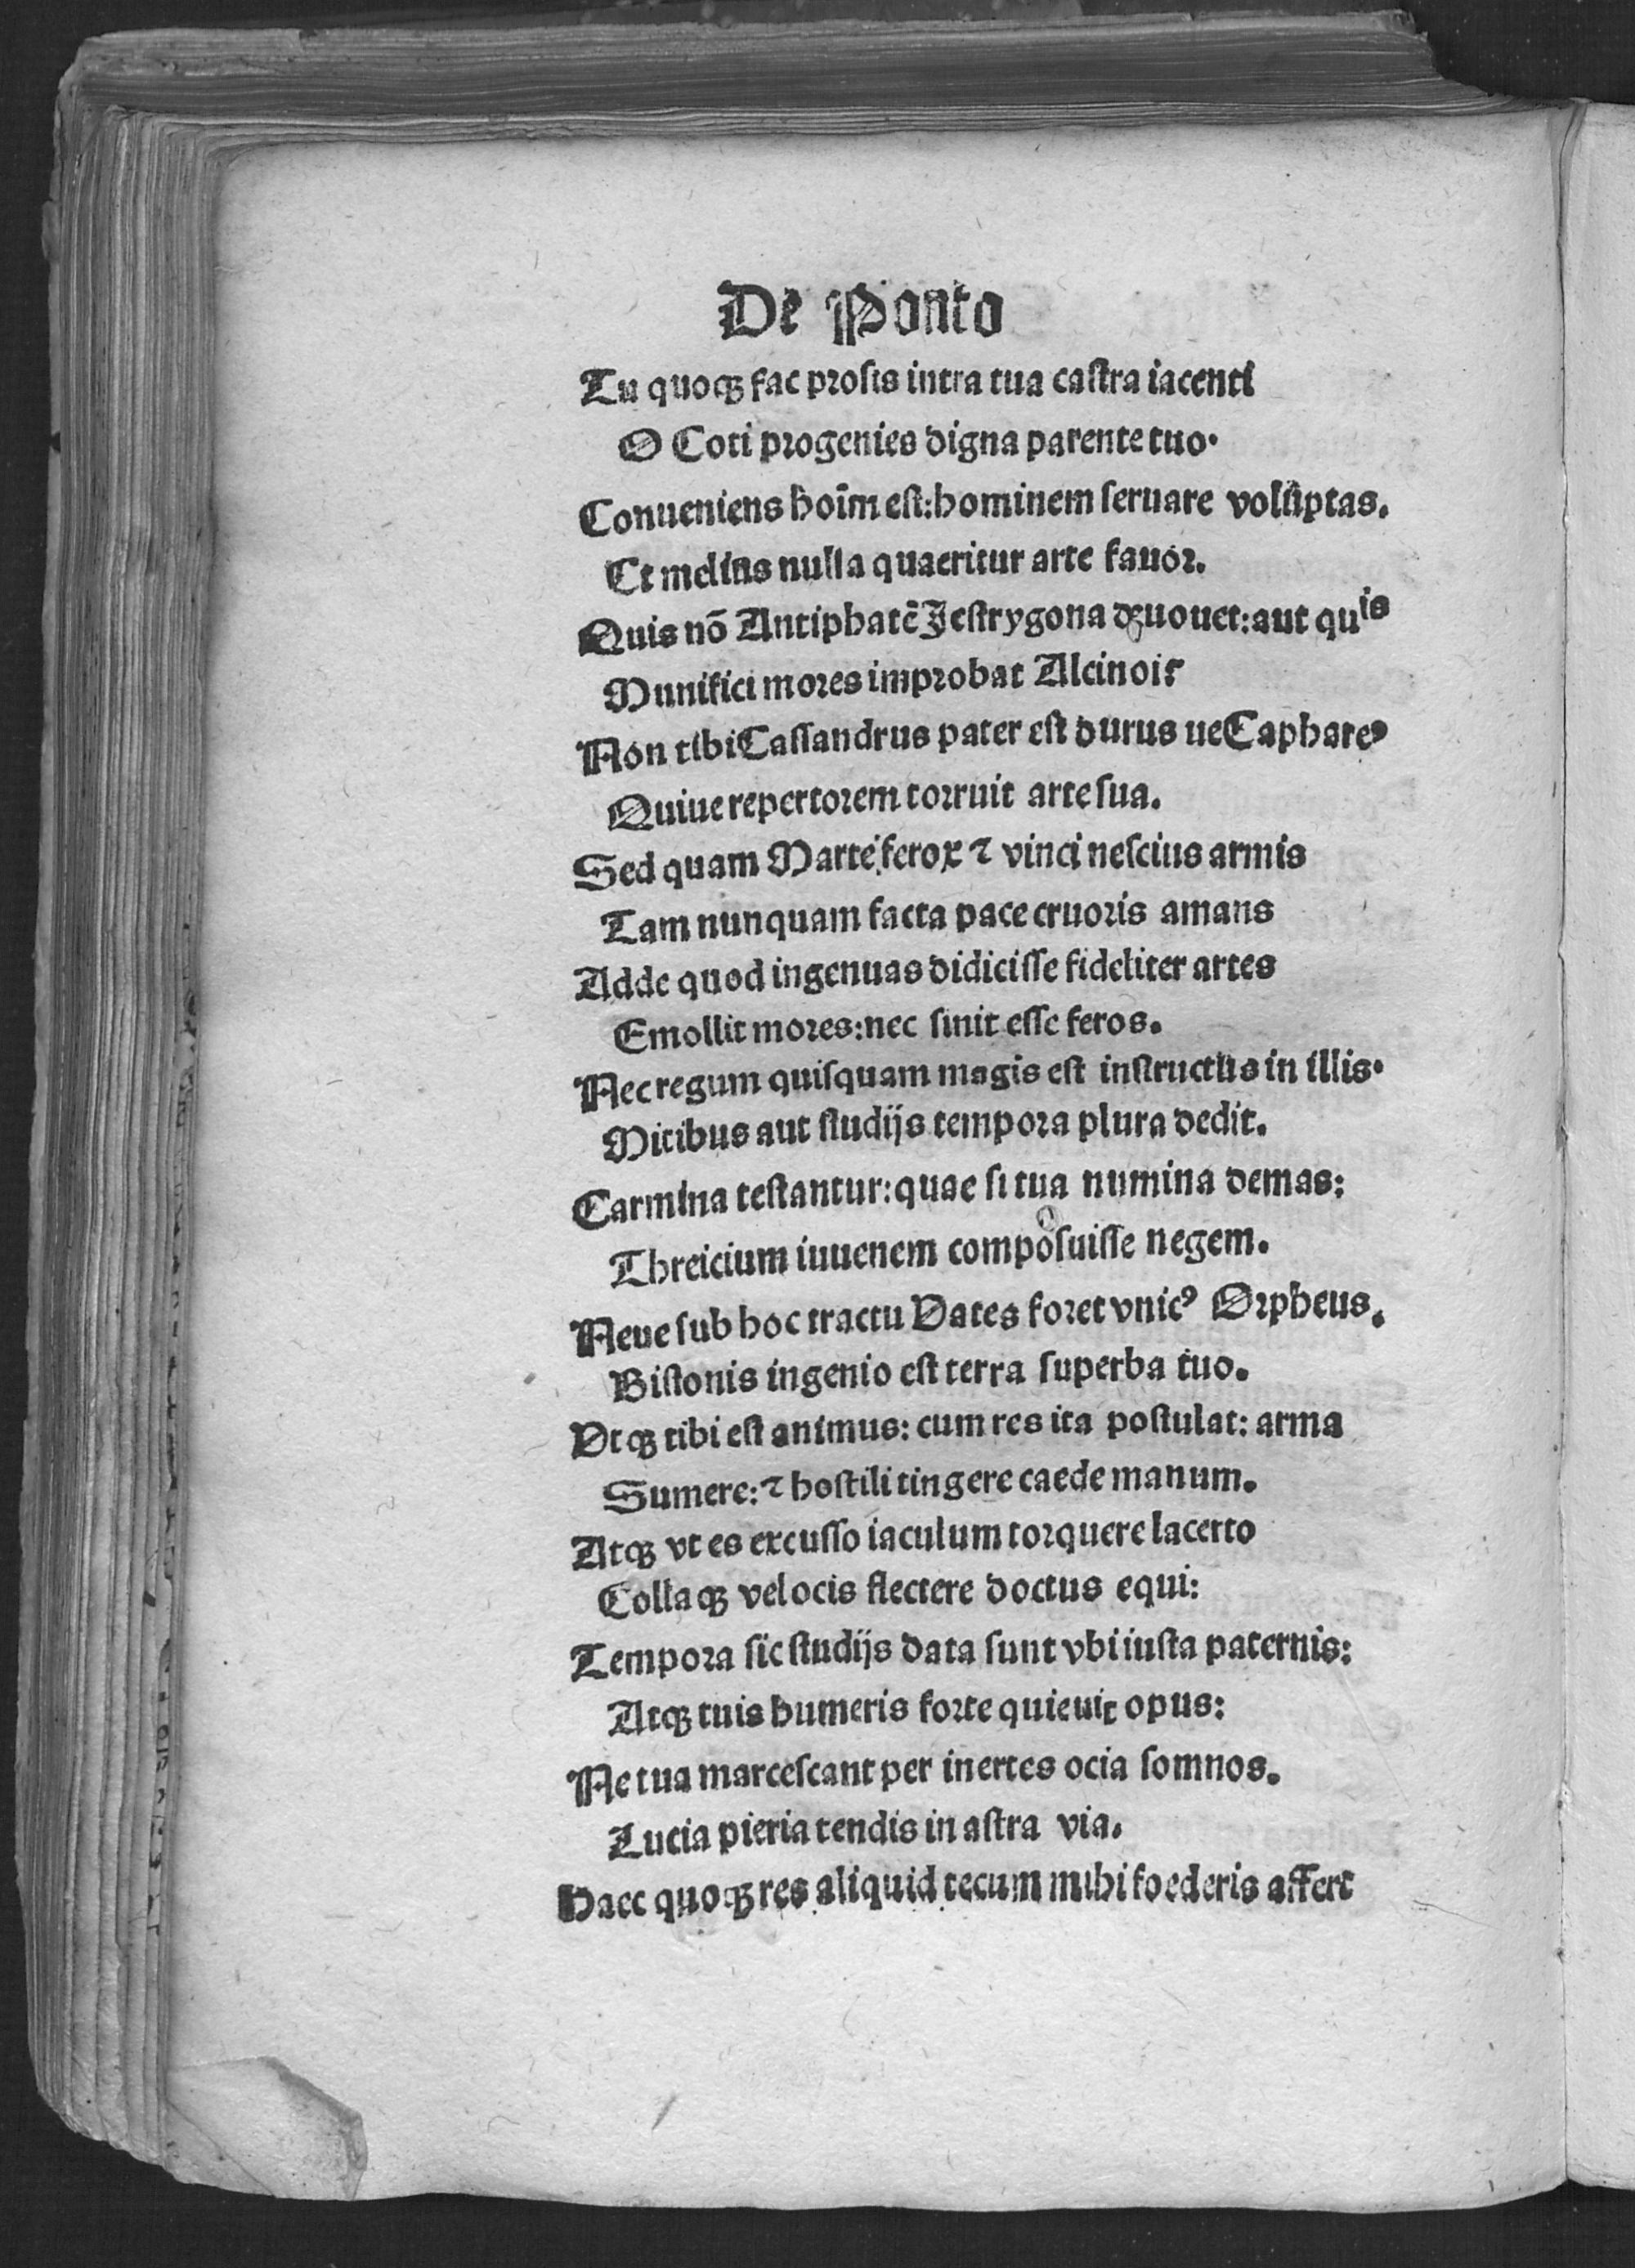 De Ponto
Tu quoqꝫ fac proſis intra tua caſtra iacenti
O Coti progenies digna parente tuo.
Conueniens hoīm eſt: hominem ſeruare voluptas.
Et melius nulla quaeritur arte fauor.
Quis nō Antiphatē Leſtrygona deuouet: aut quis
Munifici mores improbat Alcinoi?
Non tibi Caſſandrus pater eſt durus ue Caphareꝰ
Quiue repertorem torruit arte ſua.
Sed quam Marte ferox ⁊ vinci neſcius armis
Tam nunquam facta pace cruoris amans
Adde quod ingenuas didiciſſe fideliter artes
Emollit mores: nec ſinit eſſe feros.
Nec regum quiſquam magis eſt inſtructus in illis.
Mitibus aut ſtudijs tempora plura dedit.
Carmina teſtantur: quae ſi tua numina demas:
Threicium iuuenem compoſuiſſe negem.
Neue ſub hoc tractu Vates foret vnicꝰ Orpheus.
Biſtonis ingenio eſt terra ſuperba tuo.
Vtqꝫ tibi eſt animus: cum res ita poſtulat: arma
Sumere: ⁊ hoſtili tingere caede manum.
Atqꝫ vt es excuſſo iaculum torquere lacerto
Collaqꝫ velocis flectere doctus equi:
Tempora ſic ſtudijs data ſunt vbi iuſta paternis:
Atqꝫ tuis humeris forte quieuit opus:
Ne tua marceſcant per inertes ocia ſomnos.
Lucia pieria tendis in aſtra via.
Haec quoqꝫ res aliquid tecum mihi foederis affert